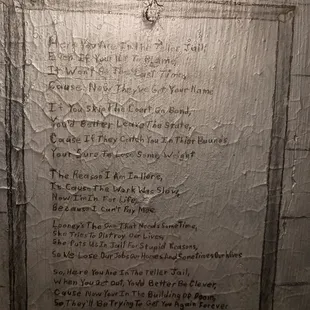 Here You Are In The Teller Jail,
Even If You Not To Blame,
It Wont Be The Last Time,
Cause Now They've Got Your Name
If You Skip The Court On Bond,
You'd Better Leave The State,
Cause If They Catch You In Thier Bounds
Your Sure to Lose Some Weight
The Reason I Am In Here,
Is Cause The Work Was Slow,
Now I'm In For Life,
Because I Can't Pay Moe
Looney's The One That Hands Time,
She Tries To Distroy Our Lives,
She Puts Us In Jail For Stupid Reasons,
So We Lose Our Jobs Our Homes And Sometimes Our Wives
So, Here You Are In The Teller Jail,
When You Get Out, You'd Better Be Clever,
Cause Now Your In The Building Of Doom,
So They'll Be Trying To Get You Again Forever